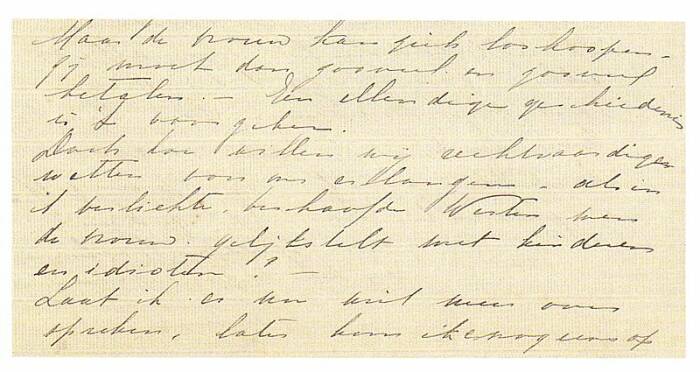 Maar de vrouw kan zich loskoopen -
zij moet dan zooveel en zooveel
betalen. - Een ellendige geschiedenis
is 't voor geher.
Doch hoe willen wij rechtvaardiger
wetten voor ons erlangen - als in
't verlichte, beschaafde Westen men
de vrouw gelijkstelt met kinderen
en idioten? -
Laat ik er nu niet meer over
spreken, later kom ik er nog eens op